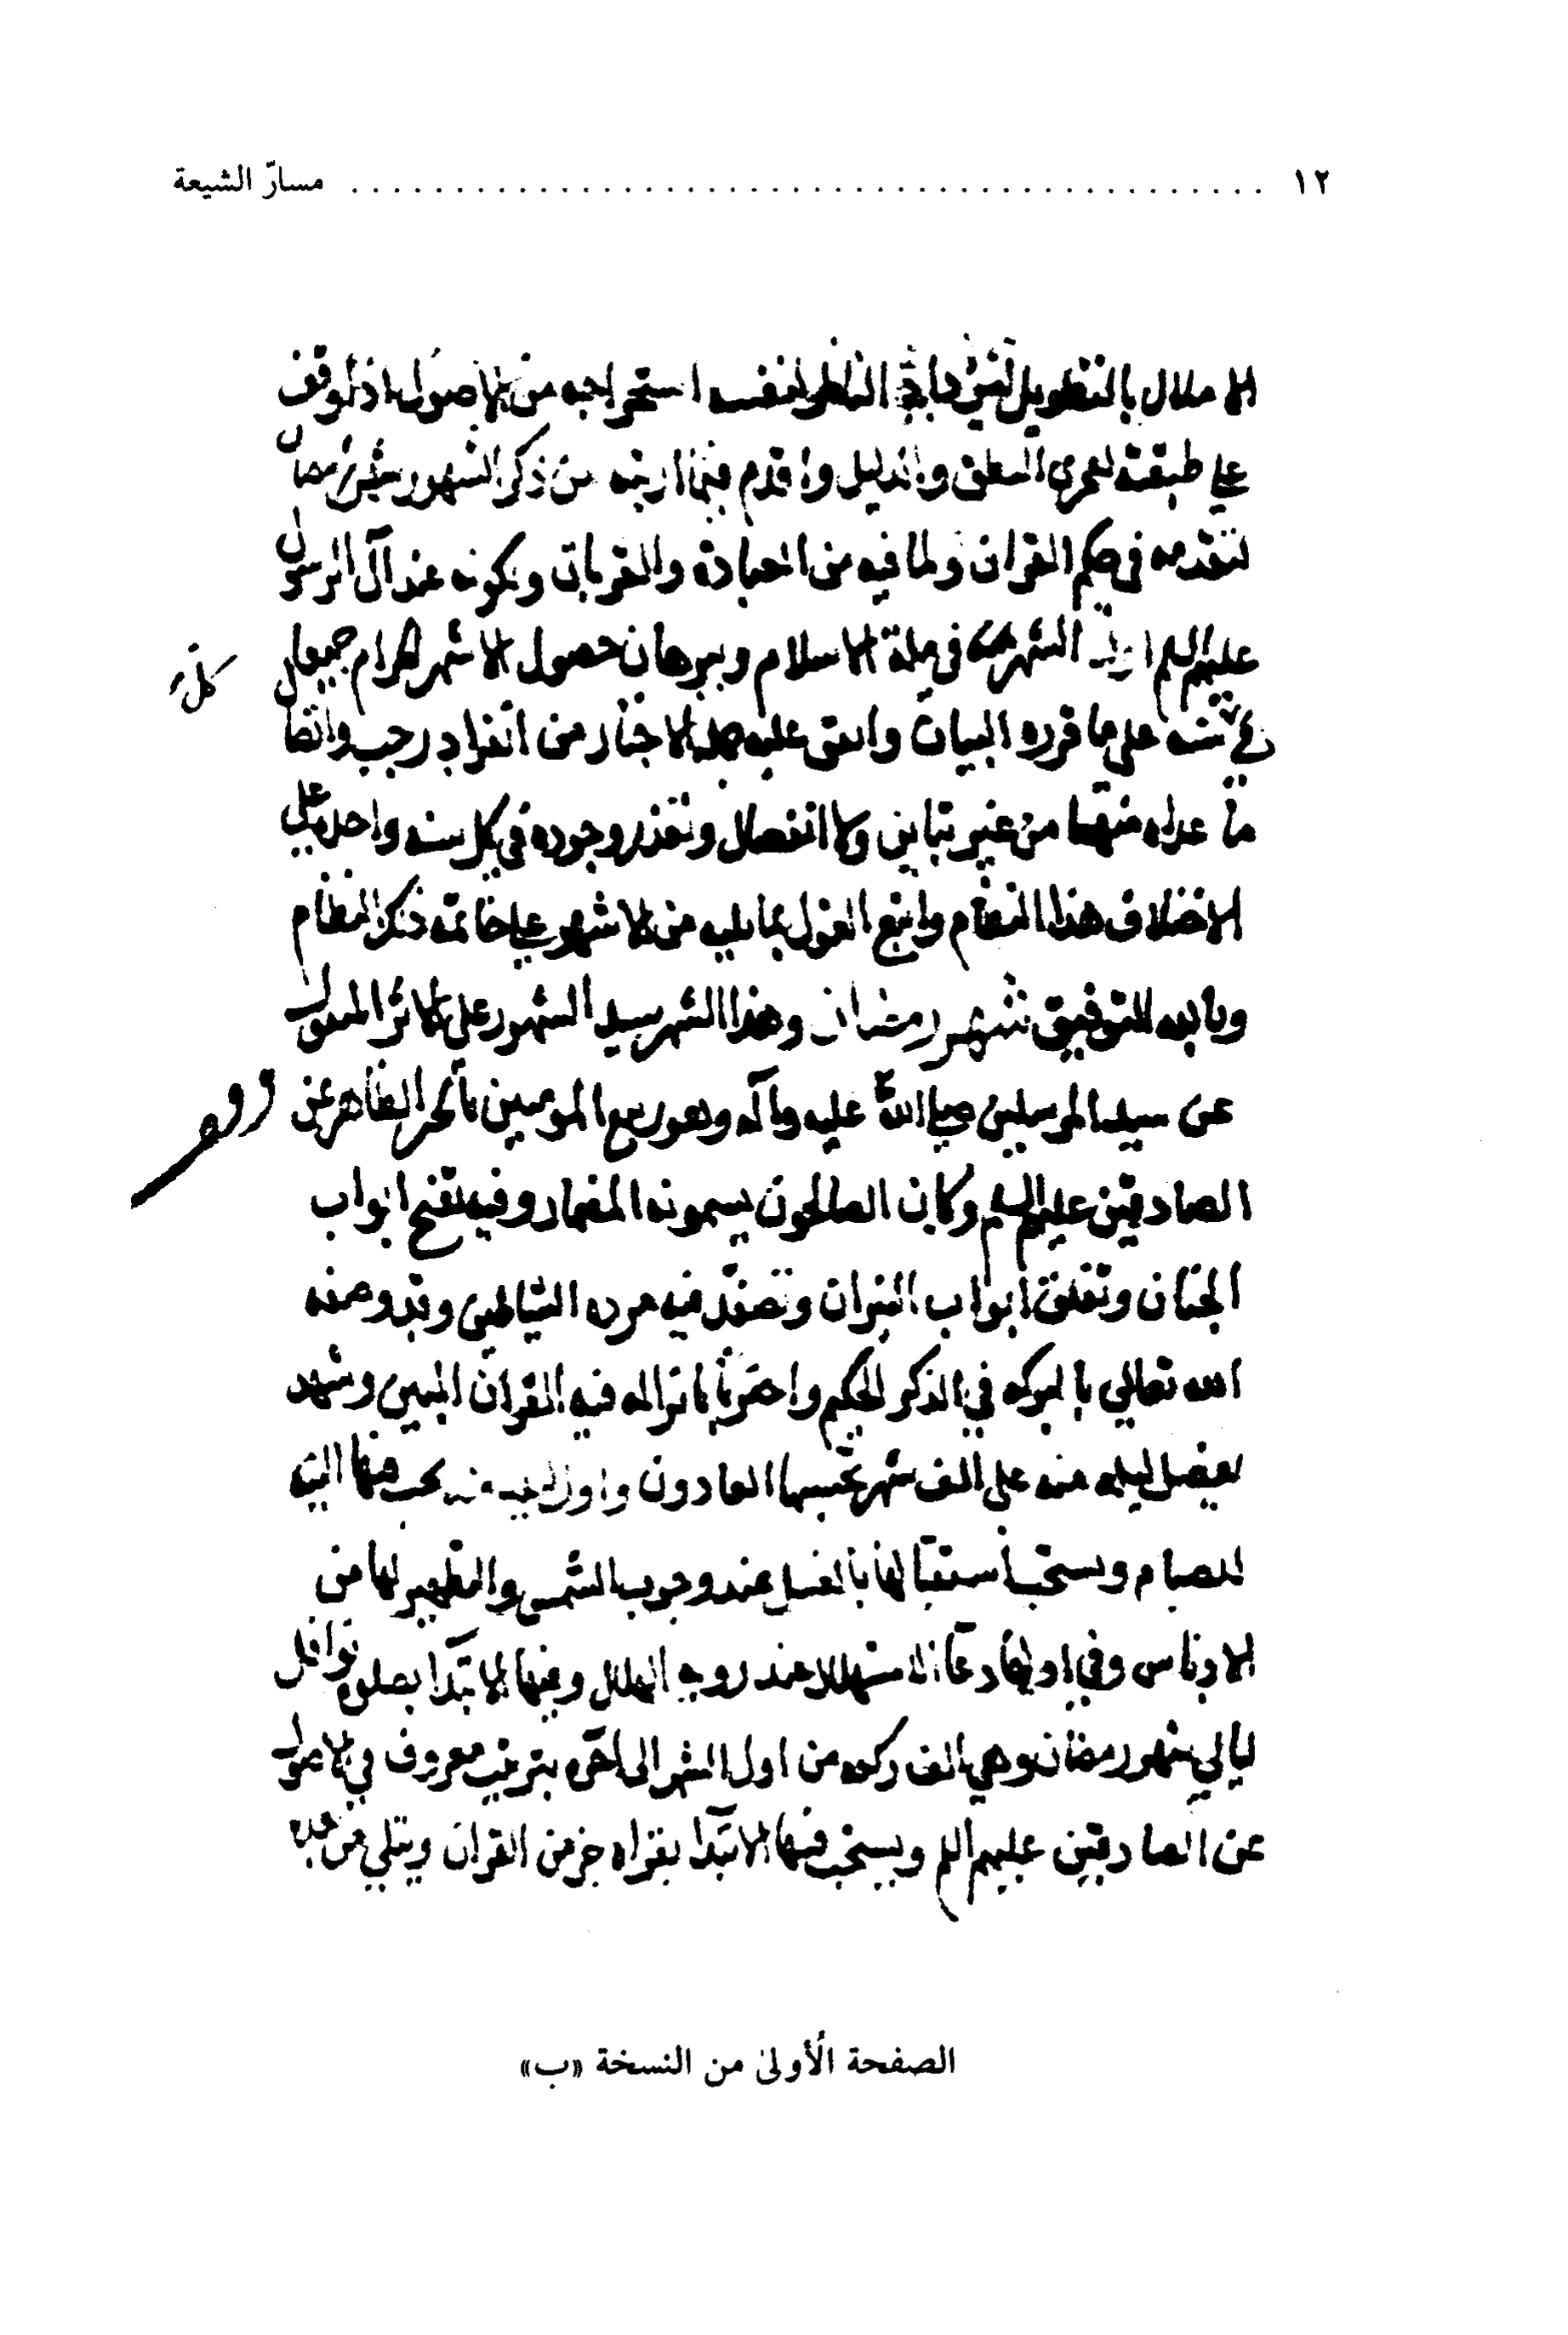 ١٢ ........................................ مسارّ الشيعة
الاملال بالتطويل الناظر لنفسه استخراجه من الاصول اذا وقف
على العلن والدليل واقدم فيما ارتبه من ذكر الشهور شهر رمضان
لتقدمه في حكم القران ولما فيه من العبادة والقربات وبكونه عند آل الرسول
عليهم السلم اول الشهر في ملة الاسلام وبرهان حصول الاشهر الحرم جميعا
في سنه على ما قرره البيان واتفق عليه الاخبار من انفراد رجب واتصال
ما عداه منها من غير تباين ولا انفصال وتعذر وجوده في كل سنه واحد على
الاختلاف هذا النظام واتبع القول بما يليه من الاشهر على خاتمه ذكر النظام
وبالله التوفيق شهر رمضان وهذا الشهر سيد الشهور على الاثر المنقول
عن سيد المرسلين صلى الله عليه وآله وهو ربيع المومنين بالخبر الظاهر عن
الصادقين عليهم السلم وكان الصالحون يسمونه المضمار وفيه تفتح ابواب
الجنان وتغلق ابواب النيران وتصفد فيه مرده الشياطين وقد وصفه
الله تعالى بالبركه في الذكر الحكيم واخبر بانزاله فيه القران المبين وشهد
بفضل ليله منه على الف شهر يحسبها العادون واول ليله منه يجب فيها النيه
للصيام ويستحب استقبالها بالغسل عند وجوب الشمس والتطهير لها من
الادناس وفي اولها دعا الاستهلال عند رويه الهلال وفيها الابتدا بصلوه نوافل
ليالي شهر رمضان وهي الف ركعه من اول الشهر الى اخره بترتيب معروف في الاصول
عن الصادقين عليهم السلم ويستحب فيها الابتدا بقراه جز من القران ويتلى من بعده
الصفحة الأولىٰ من النسخة «ب»